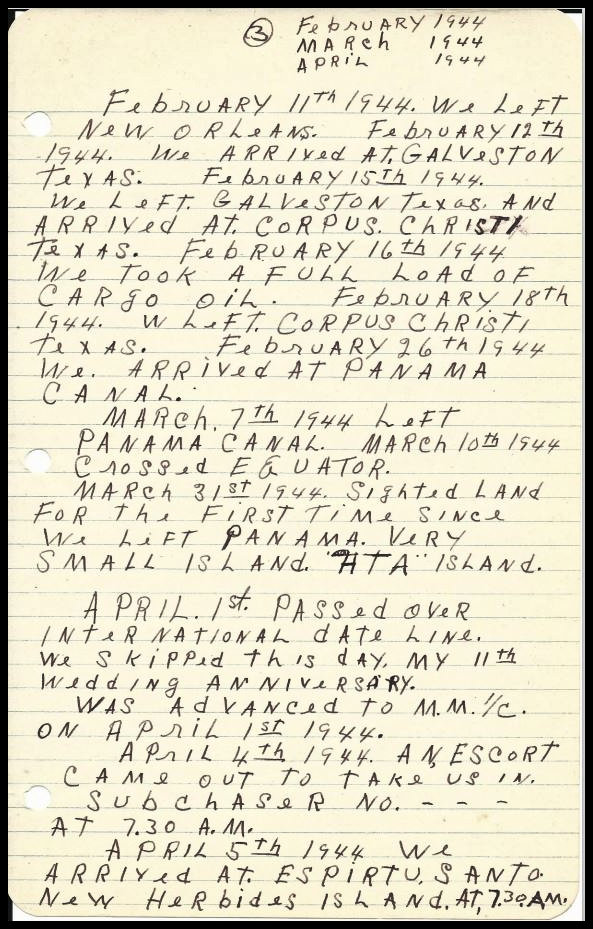 ③ FebruARY 1944
MARCh 1944
APRIL 1944
FebruARY 11th 1944. We LeFT
NeW ORLeANS. FebruARY 12th
1944. We ARRIVed AT, GALVeSTON
TeXAS. FebruARY 15th 1944.
We LeFT. GALVeSTON Texas. AND
ARRIVed AT. CORPUS. ChRISTI
TeXAS. FebRUARY 16th 1944
We TOOK A FULL LOAd OF
CARgo OiL. FebruARY 18th
1944. W LeFT. CORPUS ChRISTI
TeXAS. FebruARY 26th 1944
We. ARRiVed AT PANAMA
CANAL.
MARCh. 7th 1944 LeFT
PANAMA CANAL. MARCh 10th 1944
Crossed EQUATOR.
MARCh 31st 1944. SighTed LANd
FOR The FIRST TIMe SINCe
We LeFT PANAMA. VeRY
SMALL ISLANd. "HTA" ISLANd.
APRIL. 1st. PASSed OVeR
INTeRNATIONAL dATe LINe.
We SKIPPed ThIS dAY. MY 11th
WeddINg ANNIVeRSARY.
WAS AdVANCed TO M.M. 1/C.
ON APRIL 1st 1944.
APRIL 4th 1944. AN, ESCORT
CAMe OUT TO TAKe US IN.
SUbChASeR NO. - - -
AT 7.30 A.M.
APRIL 5th 1944 We
ARRIVed AT. ESPIRTU. SANTO.
NeW HeRbides ISLANd. AT, 7.30. AM.